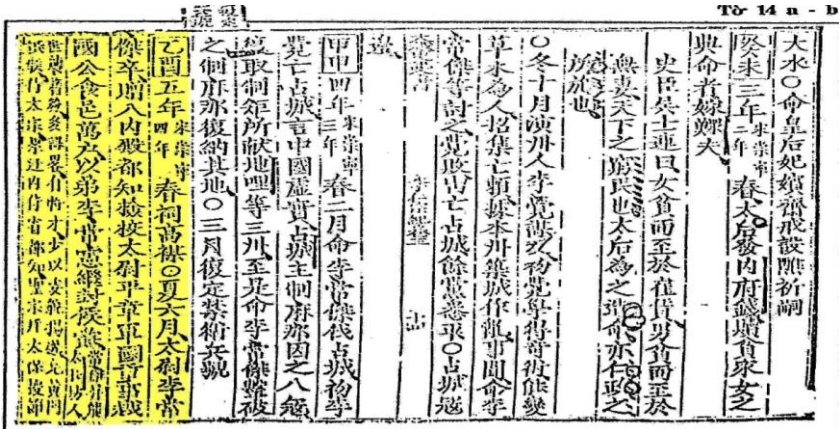 Tờ 14 a - b
大水○命皇后妃嬪齋戒設醮祈嗣
癸未三年宋崇寧二年春太后發內府錢贖貧家女之
典者嫁鰥夫
史臣吳士連曰女貧而至於傭賃男貧而至於
無妻天下之窮民也太后為之造命亦仁政之
所施也
○冬十月演州人李覺謀反初覺學得奇術能變
草木為人招集亡賴據本州築城作亂事聞命李
常傑等討之覺敗出亡占城餘黨悉平○占城寇
邊
甲申四年宋崇寧三年春二月命李常傑伐占城初李
覺亡占城言中國虛實占城主制麻那因之入寇
復取制矩所獻地哩等三州至是命李常傑擊破
之制麻那復納其地○三月復定禁衛兵號
乙酉五年宋崇寧四年春祠高禖○夏六月太尉李常
傑卒贈入內殿都知檢校太尉平章軍國重事越
國公食邑萬戶以弟李常憲繼封侯爵
世襲簪纓多謀略有將才少以姿貌揚逸充黃門
祗候侍太宗累迁內侍省都知聖宗拜太保授節